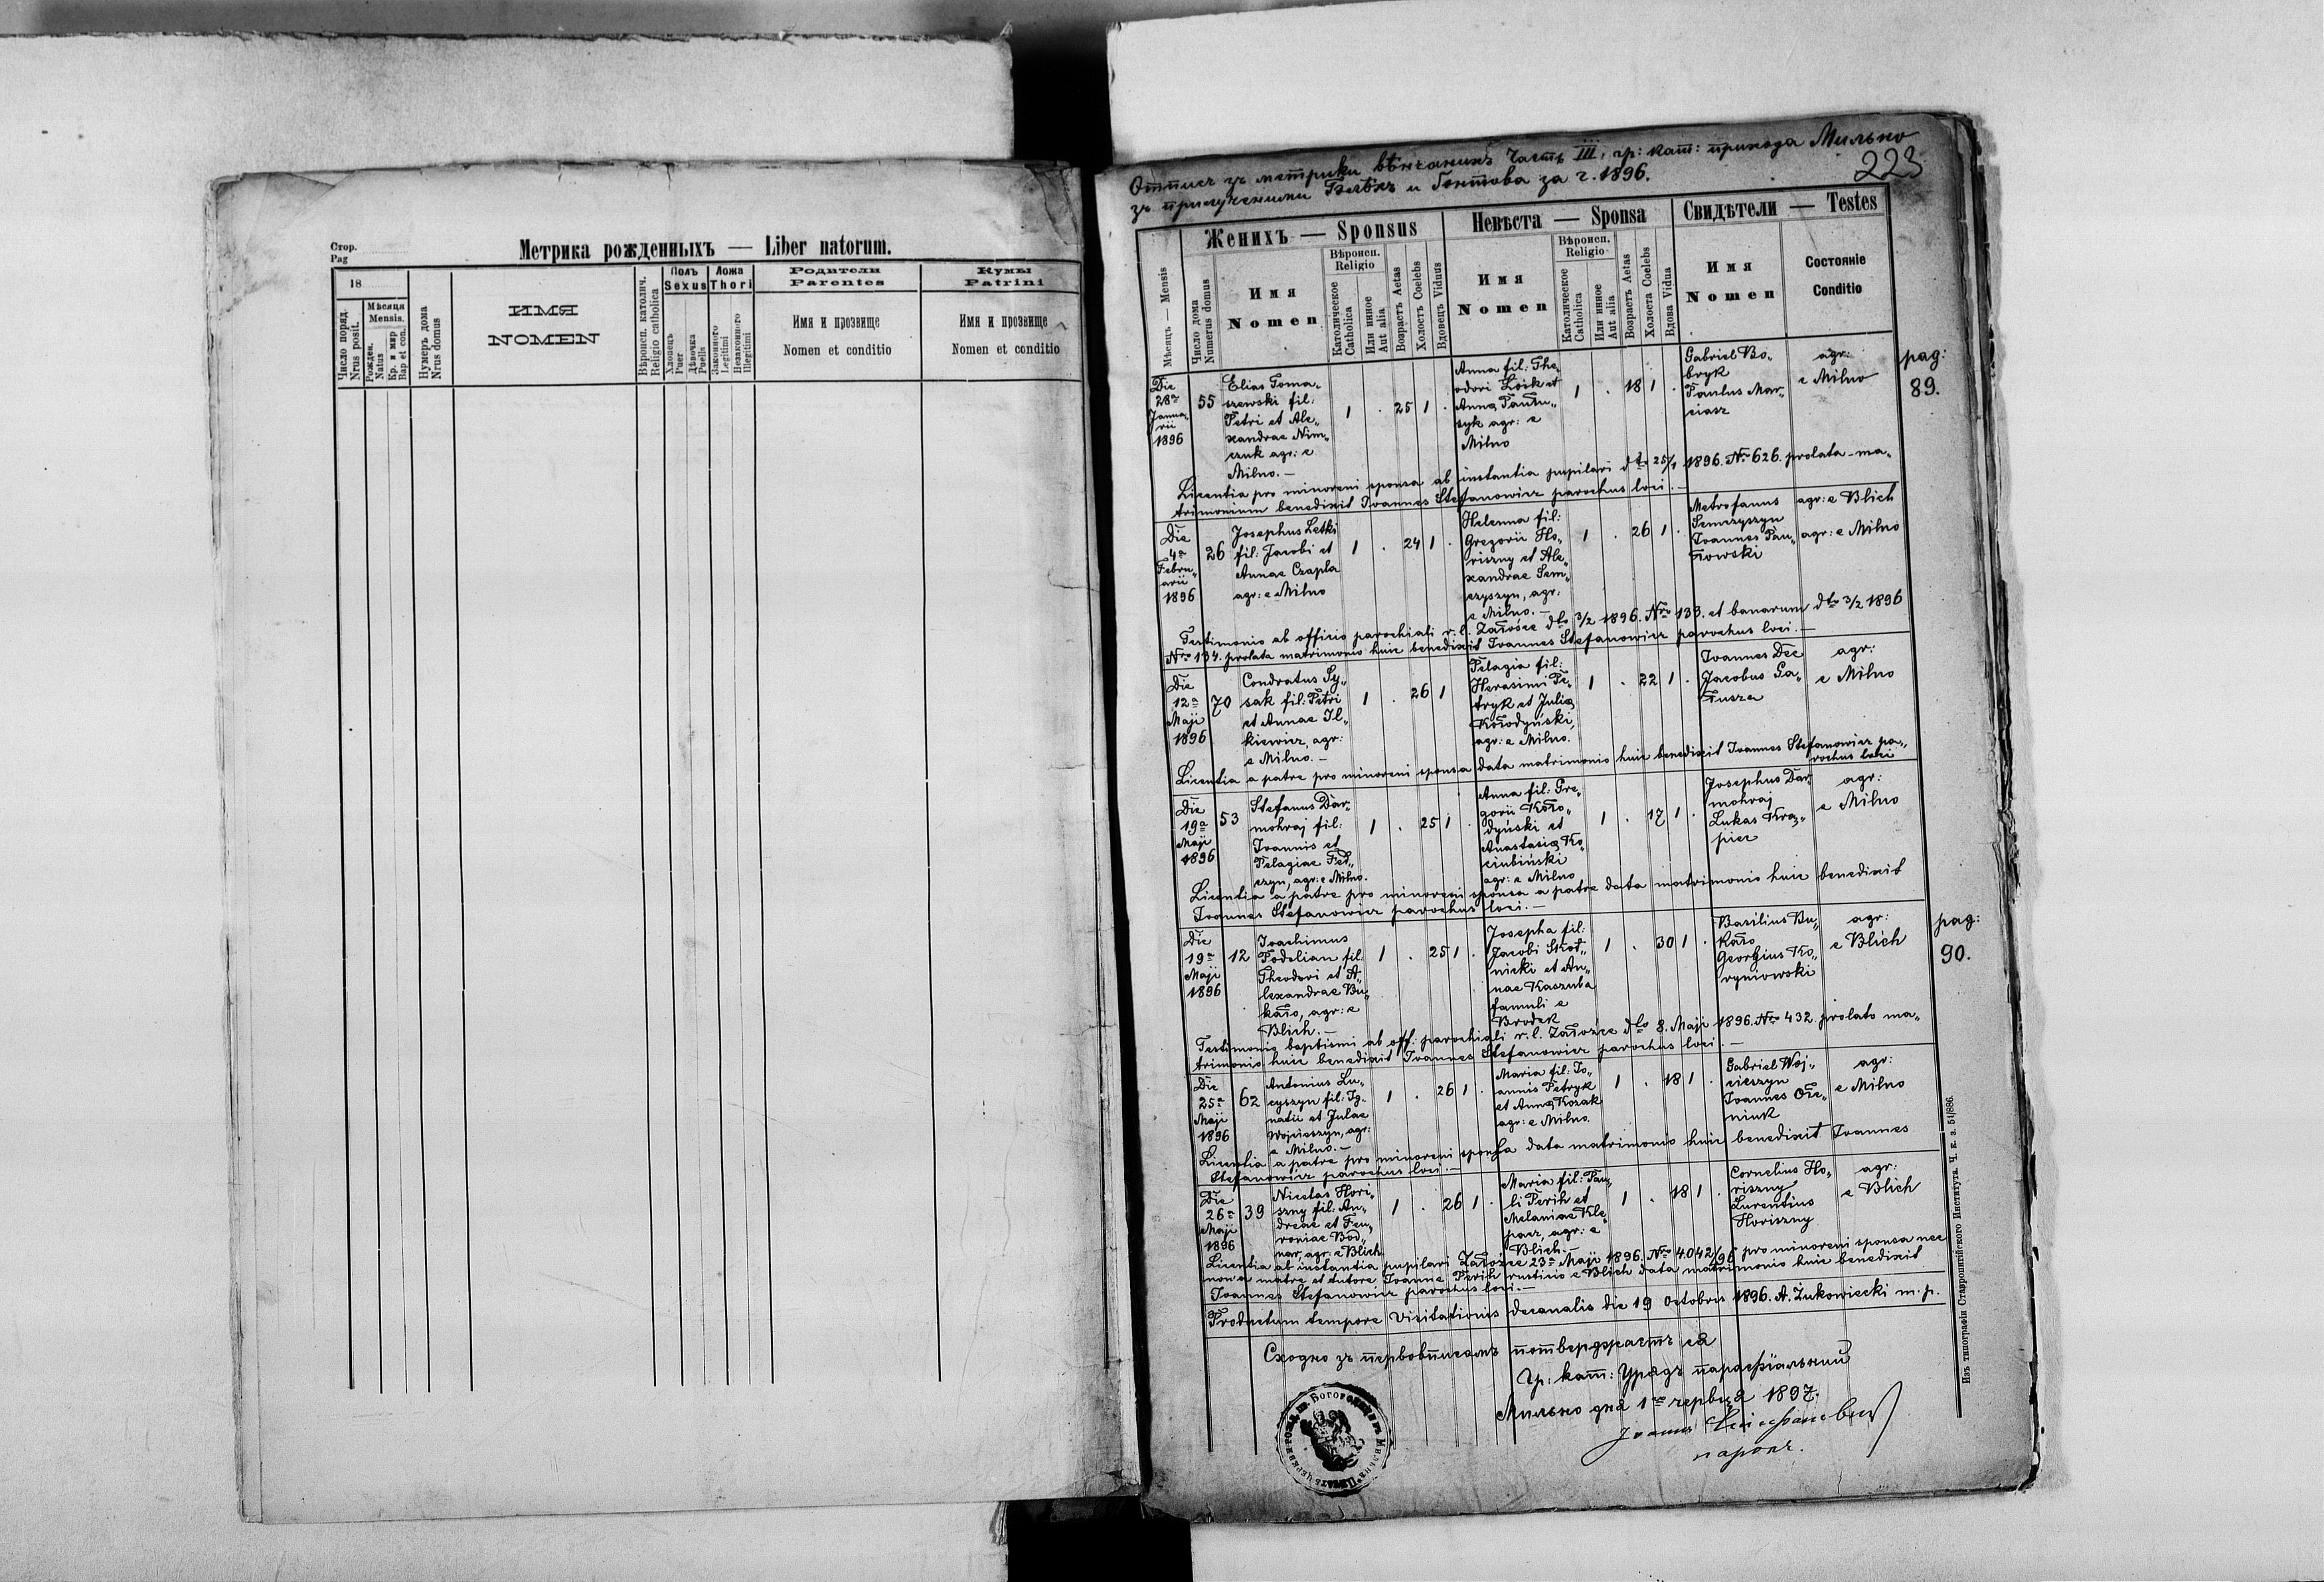 Стор.
Pag
Метрика рожденныхъ — Liber natorum.
18
Число поряд.
Nrus posit.
Мѣсяця
Mensis.
Рожден.
Natus
Кр. и мир
Bap et con.
Нумеръ дома
Nrus domus
ИМЯ
NOMEN
Вѣроисп. католич.
Religio catholica
Полъ
Sexus
Хлопець
Puer
Дѣвочка
Puella
Ложа
Thori
Законного
Legitimi
Незаконного
Illegitimi
Родители
Parentes
Имя и прозвище
Nomen et conditio
Кумы
Patrini
Имя и прозвище
Nomen et conditio
Отпис зъ метрики вѣнчаныхъ Часть III, гр: кат: прихода Мильно
223
зъ прилученими Блѣхъ и Гонтова за г. 1896.
Мѣсяць — Mensis
Число дома
Numerus domus
Женихъ — Sponsus
Имя
Nomen
Вѣроисп.
Religio
Католическое
Catholica
Или инное
Aut alia
Возрастъ Aetas
Холостъ Coelebs
Вдовецъ Viduus
Невѣста — Sponsa
Имя
Nomen
Вѣроисп.
Religio
Католическое
Catholica
Или инное
Aut alia
Возрастъ Aetas
Холоста Coelebs
Вдова Vidua
Свидѣтели — Testes
Имя
Nomen
Состояніе
Conditio
Die
28a
Janua„
rii
1896
55
Elias Toma„
szewski fil:
Petri et Ale„
xandrae Nim„
czuk agr: e
Milno. —
1 . 25 1 .
Anna fil: The„
odori Łoik et
Anna Paułu„
szyk agr: e
Milno
1 . 18 1 .
Gabriel Bo„
bryk
Paulus Mar„
ciasz
agr:
e Milno
pag:
89.
Licentia pro minoreni sponsa ab instantia pupilari dto 25/1 1896. No 626. prolata ma„
trimonium benedixit Joannes Stefanowicz parochus loci. —
Die
4a
Febru„
arii
1896
26
Josephus Letki
fil: Jacobi et
Annae Czapla
agr: e Milno
1 . 24 1 .
Helenna fil:
Gregorii Ho„
riszny et Ale„
xandrae Sem„
czyszyn, agr:
e Milno. —
1 . 26 1 .
Metrofanus
Semczyszyn
Joannes Pau„
łowski
agr: e Blich
agr: e Milno
Testimonio ab officio parochiali r. l. Załośce dto 3/2 1896. Nro 133. et banarum dto 3/2 1896
Nro 134. prolata matrimonio huic benedixit Joannes Stefanowicz parochus loci. —
Die
12a
Maji
1896
70
Condratus Sy„
sak fil: Petri
et Annae Il„
kiewicz, agr:
e Milno. —
1 . 26 1
Pelagia fil:
Herasimi Pe„
tryk et Julia
Kołodyński,
agr: e Milno.
1 . 22 1 .
Joannes Dec
Jacobus Ga„
łusza
agr:
e Milno
Licentia a patre pro minoreni sponsa data matrimonio huic benedixit Joannes Stefanowicz pa„
rochus loci
Die
19a
Maji
1896
53
Stefanus Dar„
mohraj fil:
Joannis et
Pelagiae Fed„
czyn, agr: e Milno.
1 . 25 1 .
Anna fil: Gre„
gorii Koło„
dyński et
Anastasia Ko„
ciubiński
agr: e Milno
1 . 17 1 .
Josephus Dar„
mohraj
Lukas Kra„
pier
agr:
e Milno
Licentia a patre pro minoreni sponsa a patre data matrimonio huic benedixit
Joannes Stefanowicz parochus loci. —
Die
19a
Maji
1896
12
Joachimus
Podolian fil:
Theodori et A„
lexandrae Bu„
kało, agr: e
Blich. —
1 . 25 1 .
Josepha fil:
Jacobi Skot„
nicki et An„
nae Kaszuba
famuli e
Brodek
1 . 30 1 .
Basilius Bu„
kało
Georgius Ko„
ryniowski
agr:
e Blich
pag:
90.
Testimonio baptismi ab off: parochiali r. l. Załośce dto 8. Maji 1896. Nro 432. prolato ma„
trimonio huic benedixit Joannes Stefanowicz parochus loci. —
Die
25a
Maji
1896
62
Antonius Lu„
cyszyn fil: Ig„
natii et Julae
Wojcieszyn, agr:
e Milno. —
1 . 26 1 .
Maria fil: Jo„
annis Petryk
et Anna Kozak
agr: e Milno.
1 . 18 1 .
Gabriel Woj„
cieszyn
Joannes Ole„
niuk
agr:
e Milno
Licentia a patre pro minoreni sponsa data matrimonio huic benedixit Joannes
Stefanowicz parochus loci. —
Die
26a
Maji
1896
39
Nicetas Hori„
szny fil: An„
dreae et Feu„
roniae Bod„
nar, agr: e Blich.
1 . 26 1 .
Maria fil: Pau„
li Perih et
Melaniae Kle„
parz, agr: e
Blich. —
1 . 18 1 .
Cornelius Ho„
riszny
Lurentius
Horiszny
agr:
e Blich
Licentia ab instantia pupilari Załośce 23a Maji 1896. Nro 4042/96 pro minoreni sponsa nec
non a matre et tutore Joanne Perih rustico e Blich data matrimonio huic benedixit
Joannes Stefanowicz parochus loci. —
Productum tempore visitationis decanalis die 19 Octobris 1896. A. Żukowiecki m. p.
Сходно зъ первописомъ потверджаєтъ ся
Гр: кат: Урядъ парафіяльный
Мильно дня 1го червця 1897.
Іоаннъ Стефановичъ
парохъ.
Изъ типографіи Ставропигійского Института. Ч. к. з. 51/886.